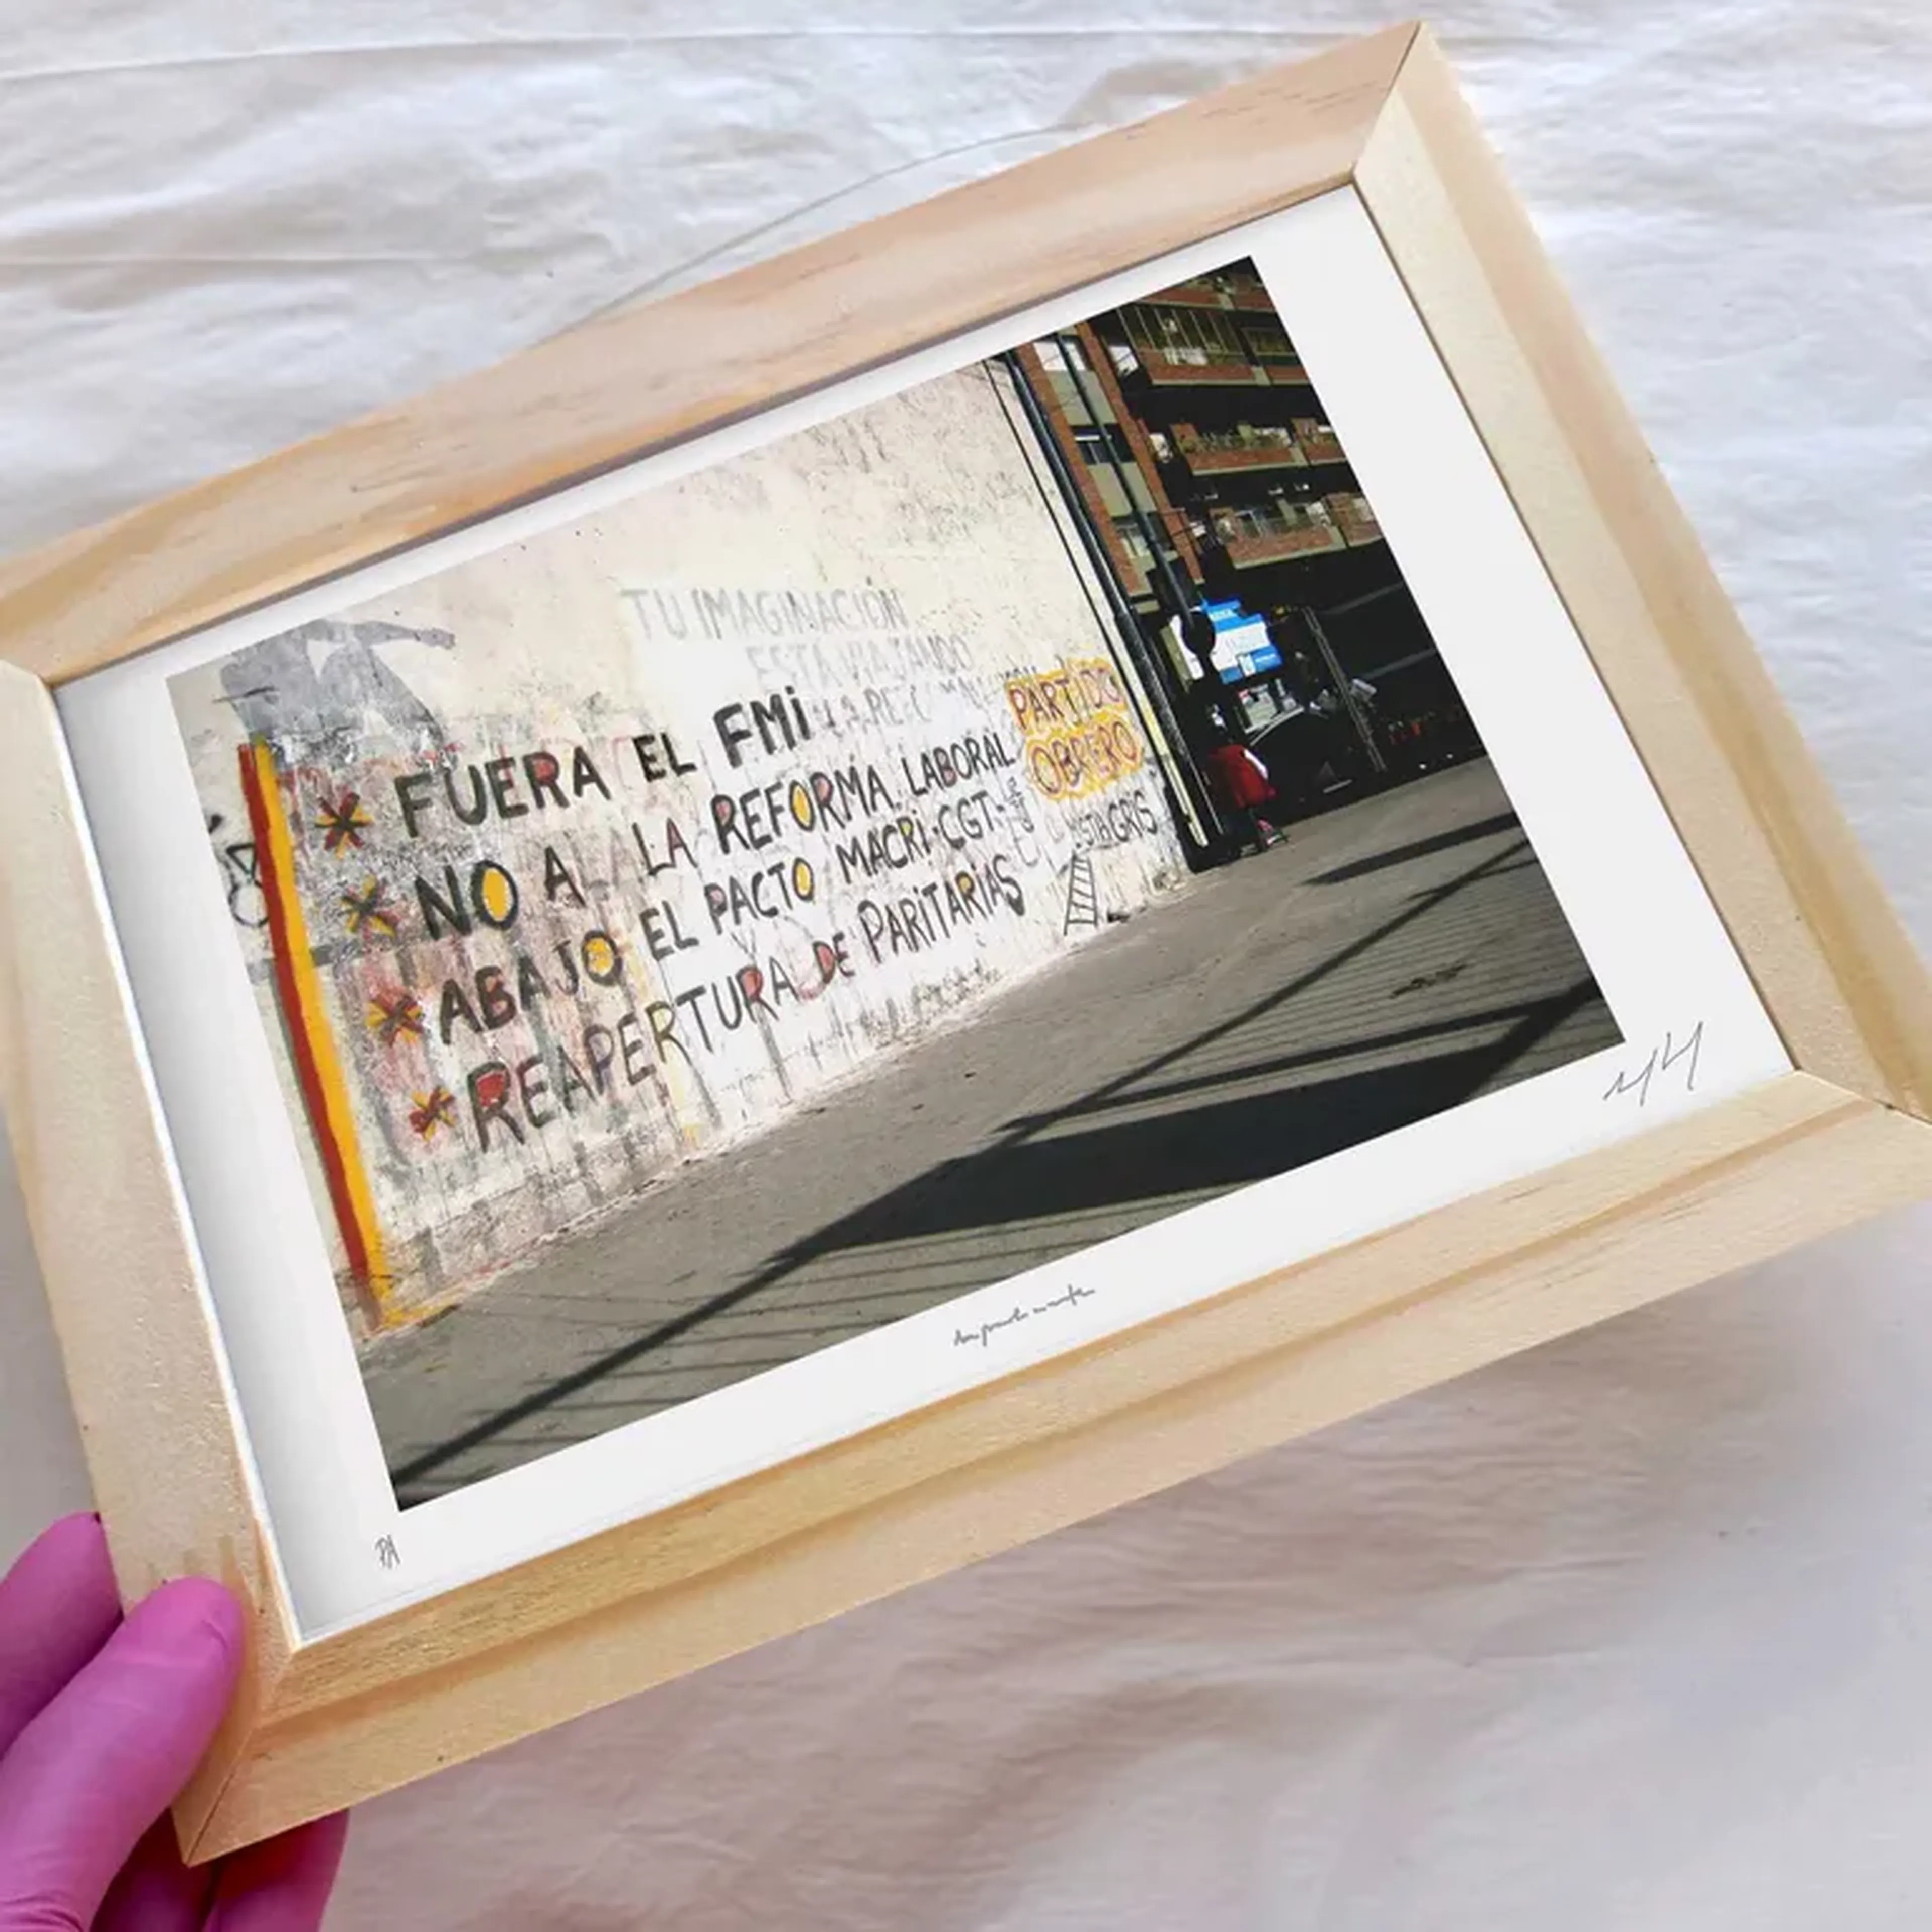 TU IMAGINACIÓN
ESTÁ VIAJANDO
* FUERA EL FMi
* NO A LA REFORMA LABORAL
* ABAJO EL PACTO MACRi-CGT-
* REAPERTURA DE PARiTARiAS
PARTIDO
OBRERO
GRIS
PA